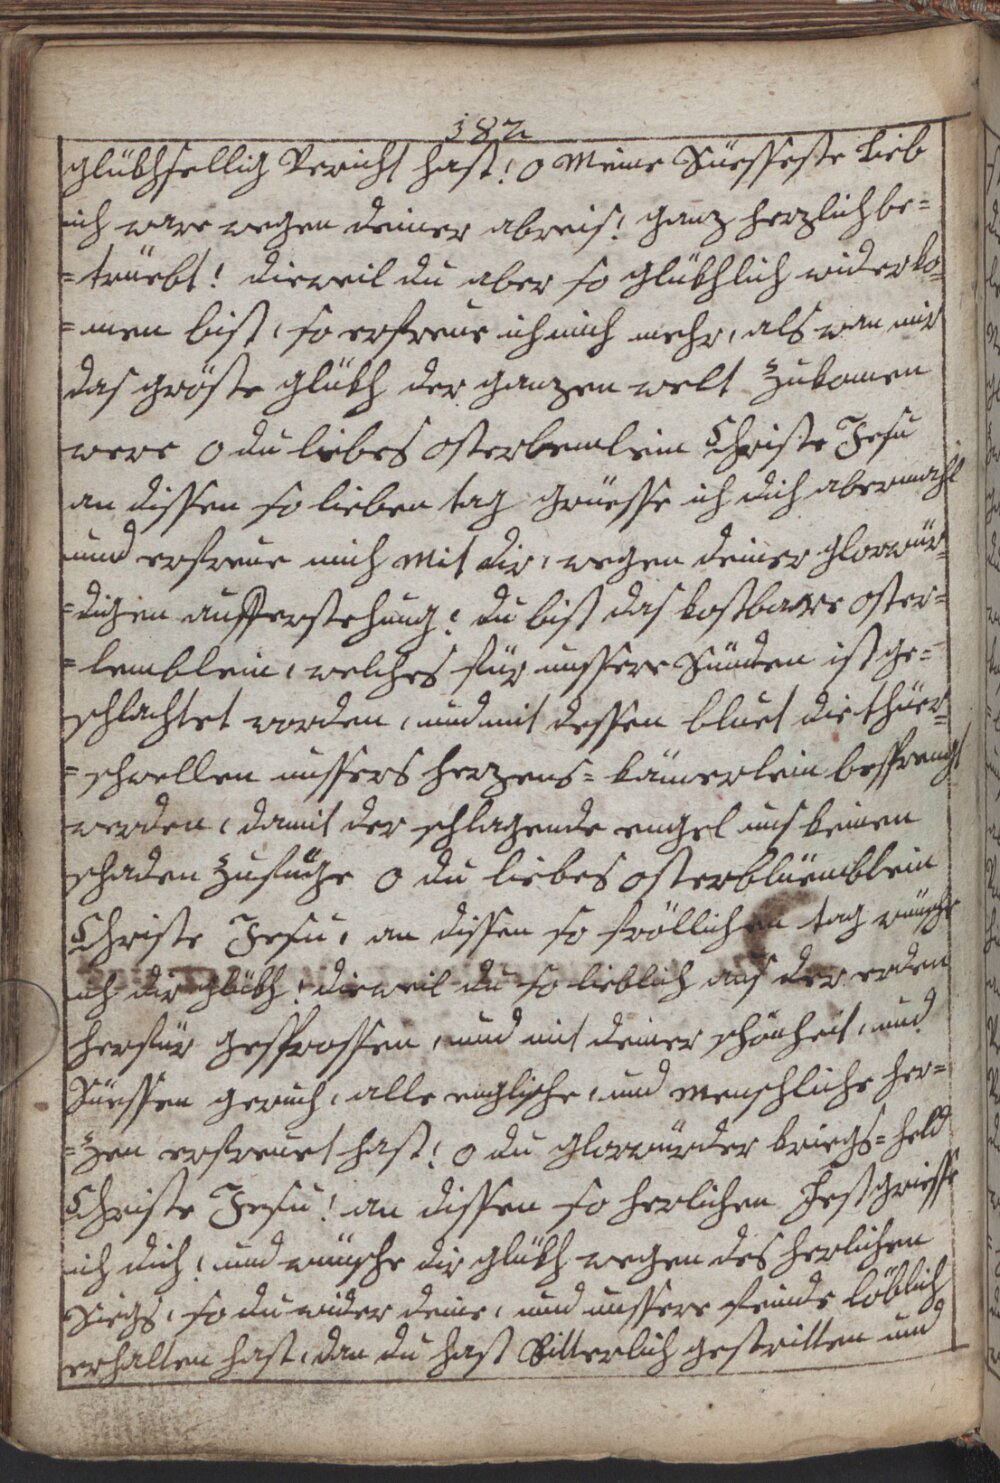 182
glükhsellig Vericht hast! O Meine Süesseste Lieb
ich ware wegen deiner abreis! ganz herzlich be=
=trüebt! dieweil du aber so glükhlich widerko=
=men bist, so erfreue ich mich mehr, als wan mir
das gröste glükh der ganzen welt zukomen
were O du liebes osterbemlein Christe Jesu
an dissen so lieben tag grüesse ich dich abermahl
und erfreue mich mit dir, wegen deiner glorwür=
=digen aufferstehung! du bist das kostbaare oster=
=lemblein, welches für unssere Sünden ist ge=
schlachtet worden, und mit dessen bluet die thüer=
=schwellen unssers herzens= kämerlein besprengt
werden, damit der schlagende engel uns keinen
schaden zufüge O du liebes osterblüemblein
Christe Jesu, an dissen so fröllichen tag wünsche
ich dir glükh! dieweil du so lieblich aus der erden
herfür gesprossen, und mit deiner schönheit, und
Süessen geruch, alle englische, und menschliche her=
=zen erfreuet hast! O du glorwürder kriegs=held
Christe Jesu! an dissen so herlichen Fest griesse
ich dich! und wünsche dir glükh wegen des herlichen
Siegs, so du wider deine, und unssere feinde löblich
erhalten hast, dan du hast Ritterlich gestritten und